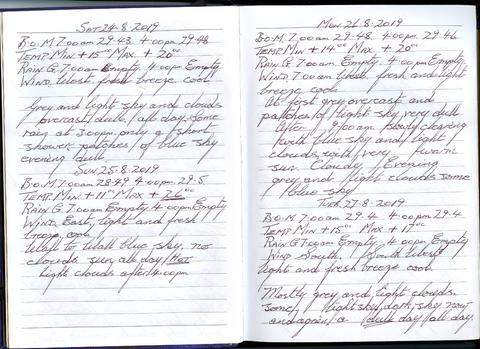 SAT 24-8-2019
B.O.M 7.00am 29-48. 4.00pm 29-48
TEMP. MIN + 15°C MAX + 20°C
RAIN G. 7.00am Empty. 4.00pm Empty
WIND. West fresh breeze cool
Grey and light sky and clouds
overcast dull, all day. Some
rain at 3.00pm only a short
shower patches of blue sky
evening dull.
SUN. 25-8-2019
B.O.M 7.00am 28-49 4.00pm. 29-5
TEMP. MIN + 11°C MAX +
RAIN G. 7.00am Empty 4.00pm Empty
WIND. East, light and fresh
breeze, cool
Wall to Wall blue sky, no
clouds sun all day HOT
light clouds after 4.00pm
MON 26-8-2019
B.O.M. 7.00am 29-48. 4.00pm. 29-46
TEMP. MIN + 14°C MAX + 20°C
RAIN G. 7.00am Empty 4.00pm Empty.
WIND. 7.00am West. fresh and light
breeze cool.
At first grey overcast and
patches of light sky, very dull
After 9.00am slowly clearing
with blue sky and light
clouds, with very warm
sun. Cloudy Evening
grey and light clouds some
blue sky
TUES. 27-8-2019
B.O.M 7.00am 29-4. 4.00pm. 29-4.
TEMP. MIN + 15°C MAX + 17°C
RAIN G 7.00am Empty. 4.00pm Empty
WIND South. South West
light and fresh breeze cool.
Mostly grey and light clouds.
Some light sky, dark, sky now
and again, a dull day all day.